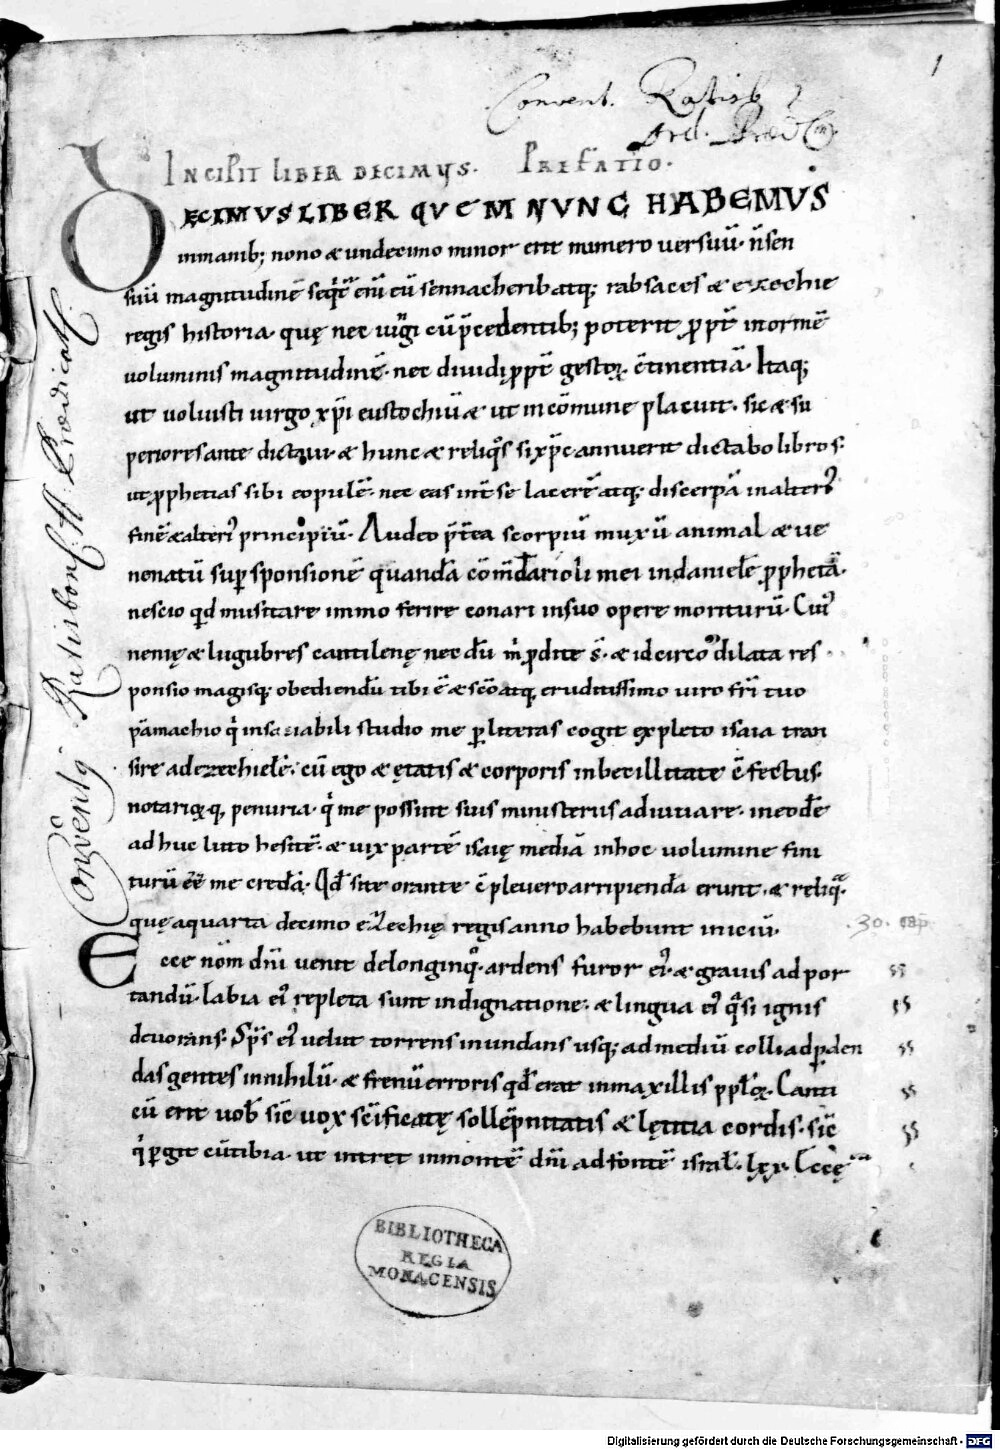 1
Convent. Ratisb.
Ord. Præd.
INCIPIT LIBER DECIMUS. PREFATIO.
DĘCIMVS LIBER QVEM NVNC HABEMVS
inmanib; nono & undecimo minor erit numero uersuū. ñ sen
suū magnitudinē seqt̄ enī cū sennacherib atq; rabsaces & ezechie
regis historia. quę nec iungi cū p̄cedentib; poterit ꝓpt̄ inormē
voluminis magnitudinē. nec diuidi ꝓpt̄ gestoꝝ c̄tinentiā. Itaq;
ut voluisti uirgo xp̄i eustochiū & ut incōmune placuit. sic & su
periores ante dictaui & hunc & reliqͦs si xp̄c annuerit dictabo libros.
ut ꝓphetias sibi copulē. nec eas int̄ se lacerē atq; discerpā inalteri᾿
finē & alteri᾿ principiū. Audeo p̄t̄ea scorpiū muxū animal & ue
nenatū suꝑ sponsionē quandā cōm̄darioli mei in daniele ꝓphetā.
nescio qd musitare immo ferire conari insuo opere moriturū. Cui᾿
nenię & lugubres cantilenę nec dū m̄ ꝓdite s̄. & idcirco dilata res
ponsio magisq; obediendū tibi ē & sc̄o atq; eruditissimo uiro fr̄i tuo
pāmachio qͥ insaciabili studio me ꝑ literas cogit expleto isaia tran
sire ad ezechielē. cū ego & ętatis & corporis inbecillitate ēfectus.
notarioꝝq; penuria. qͥ me possint suis ministeriis adiuuare. ineodē
ad huc luto hesitē. & uix partē isaię mediā inhoc uolumine fini
turū ēē me credā. Qd̄ si te orante c̄pleuero arripienda erunt. & reliqᵃ.
quę aquarta decimo ezechię regis anno habebunt iniciū.
30. cap.
Ecce nōm dn̄i uenit delonginqͦ. ardens furor ei᾿. & grauis ad por
tandū. labia ei᾿ repleta sunt indignatione. & lingua ei᾿ qᵃsi ignis
deuorans. Sp̄s ei᾿ uelut torrens inundans usq; ad mediū colli ad ꝑden
das gentes innihilū. & frenū erroris qd̄ erat inmaxillis ppl̄oꝝ. Canti
cū erit uob̄ sic̄ uox sc̄ificatę sollēpnitatis & lętitia cordis. sic̄
qͥ ꝑgit cū tibia. ut intret inmontē dn̄i ad fontē isrl̄. lxx. Ecce
Conventus Ratisbonens. Prædicat.
BIBLIOTHECA
REGIA
MONACENSIS
Digitalisierung gefördert durch die Deutsche Forschungsgemeinschaft - DFG